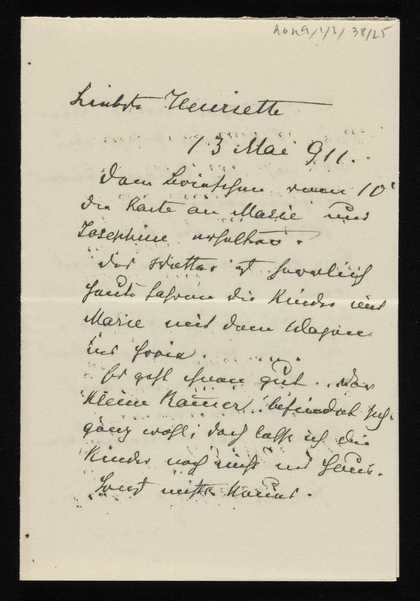 Liebste Henriette
13 Mai 911.
vom 10'
die Karte an Marie und
Josephine erhalten.
Das Wetter ist herrlich
heute fahren die Kinder mit
Marie mit dem Wagen
ins Freie.
Es geht ihnen gut. Der
kleine Rainer befindet sich
ganz wohl; doch lasse ich die
Kinder noch nicht ins Haus.
Sonst nichts Neues.